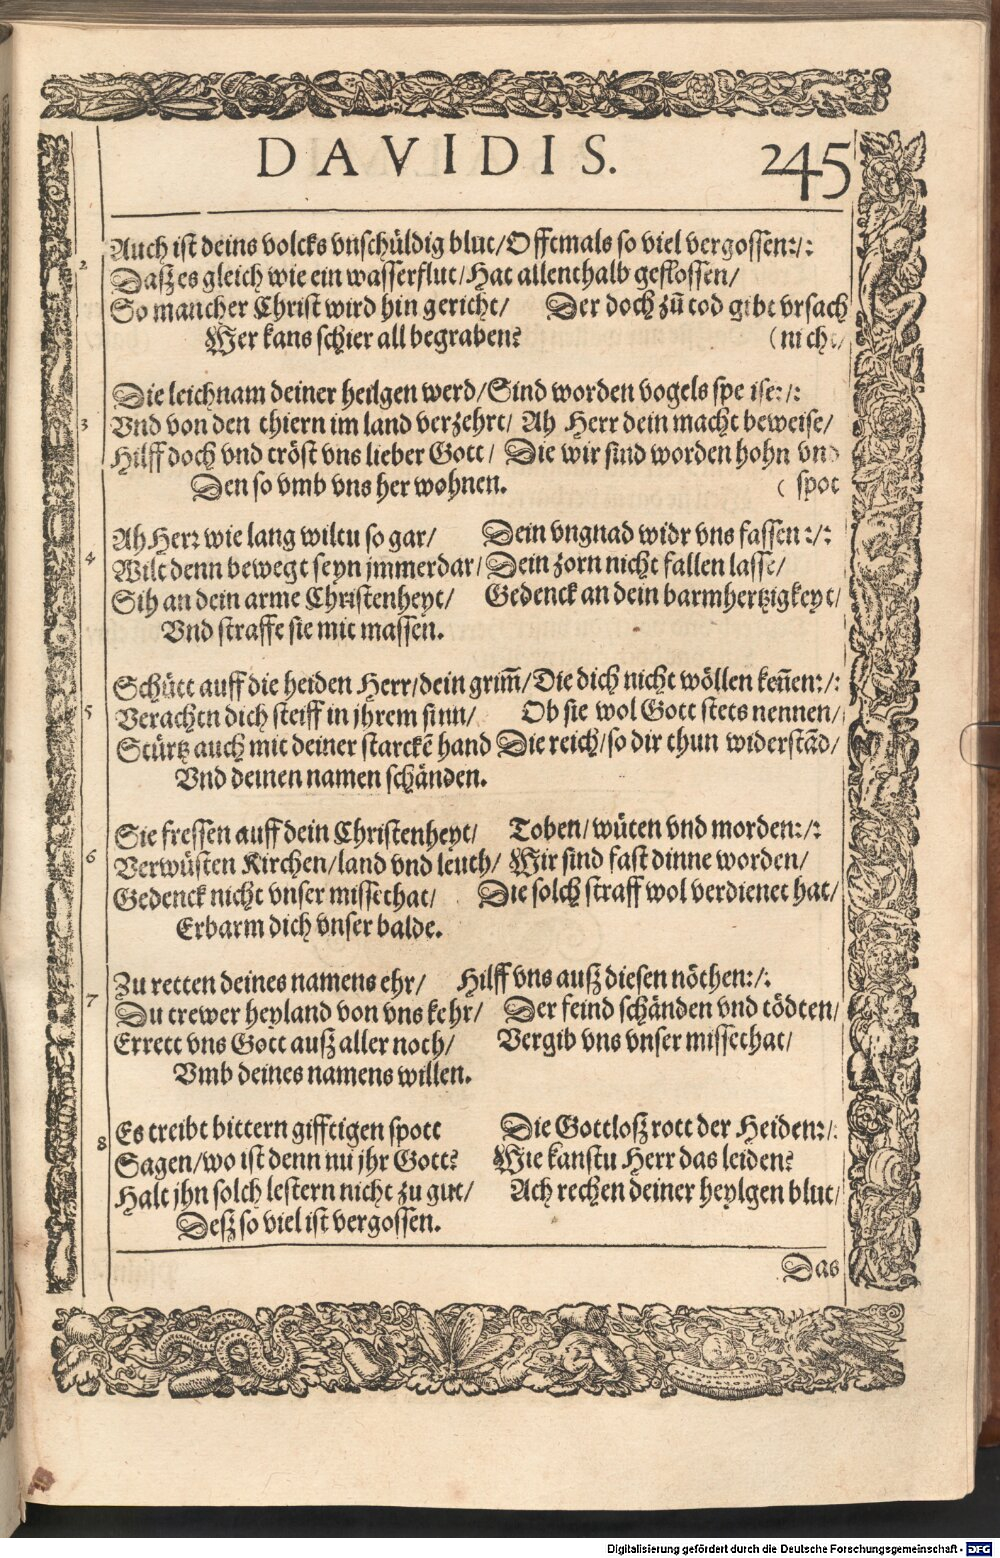 DAVIDIS. 245
Auch ist deins volcks vnschüldig blut/Offtmals so viel vergossen:/:
2 Daß es gleich wie ein wasserflut/Hat allenthalb geflossen/
So mancher Christ wird hin gericht/ Der doch zū tod gibt vrsach
Wer kans schier all begraben? (nicht/
Die leichnam deiner heilgen werd/Sind worden vogels speise:/:
3 Vnd von den thiern im land verzehrt/ Ah Herr dein macht beweise/
Hilff doch vnd tröst vns lieber Gott/ Die wir sind worden hohn vnd
Den so vmb vns her wohnen. (spot
Ah Herr wie lang wiltu so gar/ Dein vngnad widr vns fassen:/:
4 Wilt denn bewegt seyn jmmerdar/Dein zorn nicht fallen lasse/
Sih an dein arme Christenheyt/ Gedenck an dein barmhertzigkeyt/
Vnd straffe sie mit massen.
Schütt auff die heiden Herr/dein grim̄/Die dich nicht wöllen keñen:/:
5 Verachtn dich steiff in jhrem sinn/ Ob sie wol Gott stets nennen/
Stürtz auch mit deiner starckē hand Die reich/so dir thun widerstād/
Vnd deinen namen schänden.
Sie fressen auff dein Christenheyt/ Toben/wüten vnd morden:/:
6 Verwüsten Kirchen/land vnd leuth/ Wir sind fast dinne worden/
Gedenck nicht vnser missethat/ Die solch straff wol verdienet hat/
Erbarm dich vnser balde.
Zu retten deines namens ehr/ Hilff vns auß diesen nöthen:/:
7 Du trewer heyland von vns kehr/ Der feind schänden vnd tödten/
Errett vns Gott auß aller noth/ Vergib vns vnser missethat/
Vmb deines namens willen.
Es treibt bittern gifftigen spott Die Gottloß rott der Heiden:/:
8 Sagen/wo ist denn nu jhr Gott? Wie kanstu Herr das leiden?
Halt jhn solch lestern nicht zu gut/ Ach rechen deiner heylgen blut/
Deß so viel ist vergossen.
Das
Digitalisierung gefördert durch die Deutsche Forschungsgemeinschaft - DFG